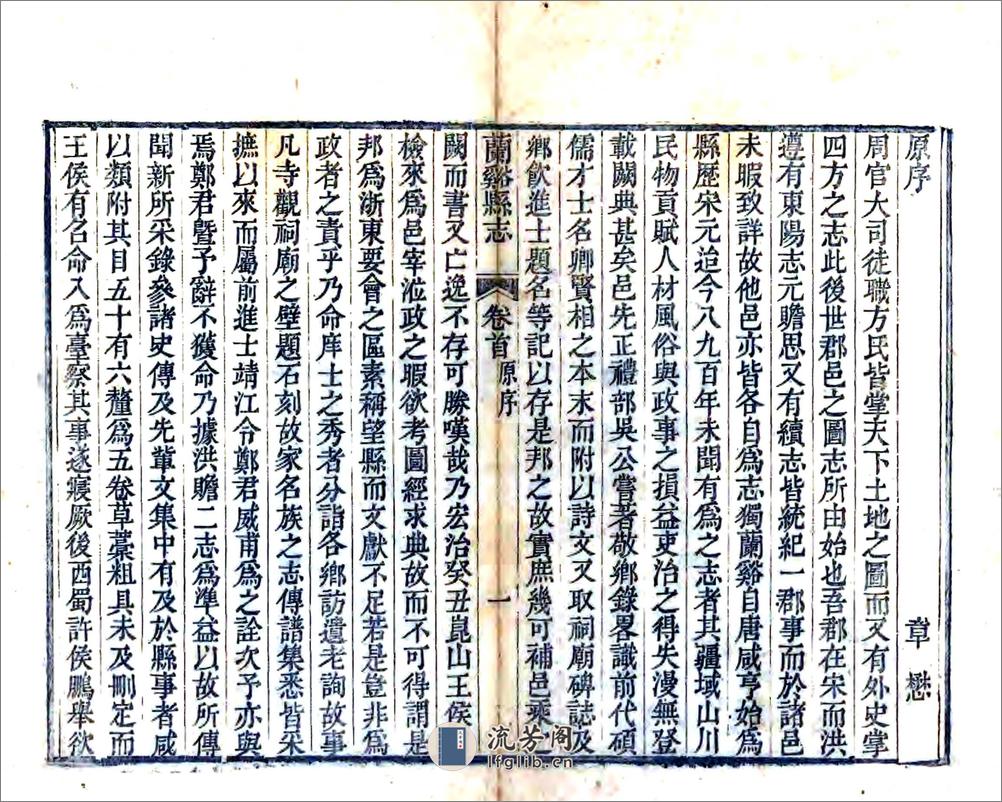 原序
章懋
周官大司徒職方氏皆掌天下土地之圖而又有外史掌
四方之志此後世郡邑之圖志所由始也吾郡在宋而洪
遵有東陽志元瞻思又有續志皆統紀一郡事而於諸邑
未暇致詳故他邑亦皆各自爲志獨蘭谿自唐咸亨始爲
縣歷宋元迨今八九百年未聞有爲之志者其疆域山川
民物貢賦人材風俗與政事之損益吏治之得失漫無登
載闕典甚矣邑先正禮部吳公嘗著敬鄉錄畧識前代碩
儒才士名卿賢相之本末而附以詩文又取祠廟碑誌及
鄉飲進士題名等記以存是邦之故實庶幾可補邑乘
蘭谿縣志
卷首
原序
一
闕而書又亡逸不存可勝嘆哉乃宏治癸丑崑山王侯
檢來爲邑宰涖政之暇欲考圖經求典故而不可得謂是
邦爲浙東要會之區素稱望縣而文獻不足若是豈非爲
政者之責乎乃命庠士之秀者分詣各鄉訪遺老詢故事
凡寺觀祠廟之壁題石刻故家名族之志傳譜集悉皆采
摭以來而屬前進士靖江令鄭君威甫爲之詮次予亦與
焉鄭君曁予辭不獲命乃據洪瞻二志爲準益以故所傳
聞新所采錄參諸史傳及先輩文集中有及於縣事者咸
以類附其目五十有六釐爲五卷草藁粗具未及刪定而
王侯有名命入爲臺察其事遂寢厥後西蜀許侯鵬舉欲
流芳阁
lfglib.cn